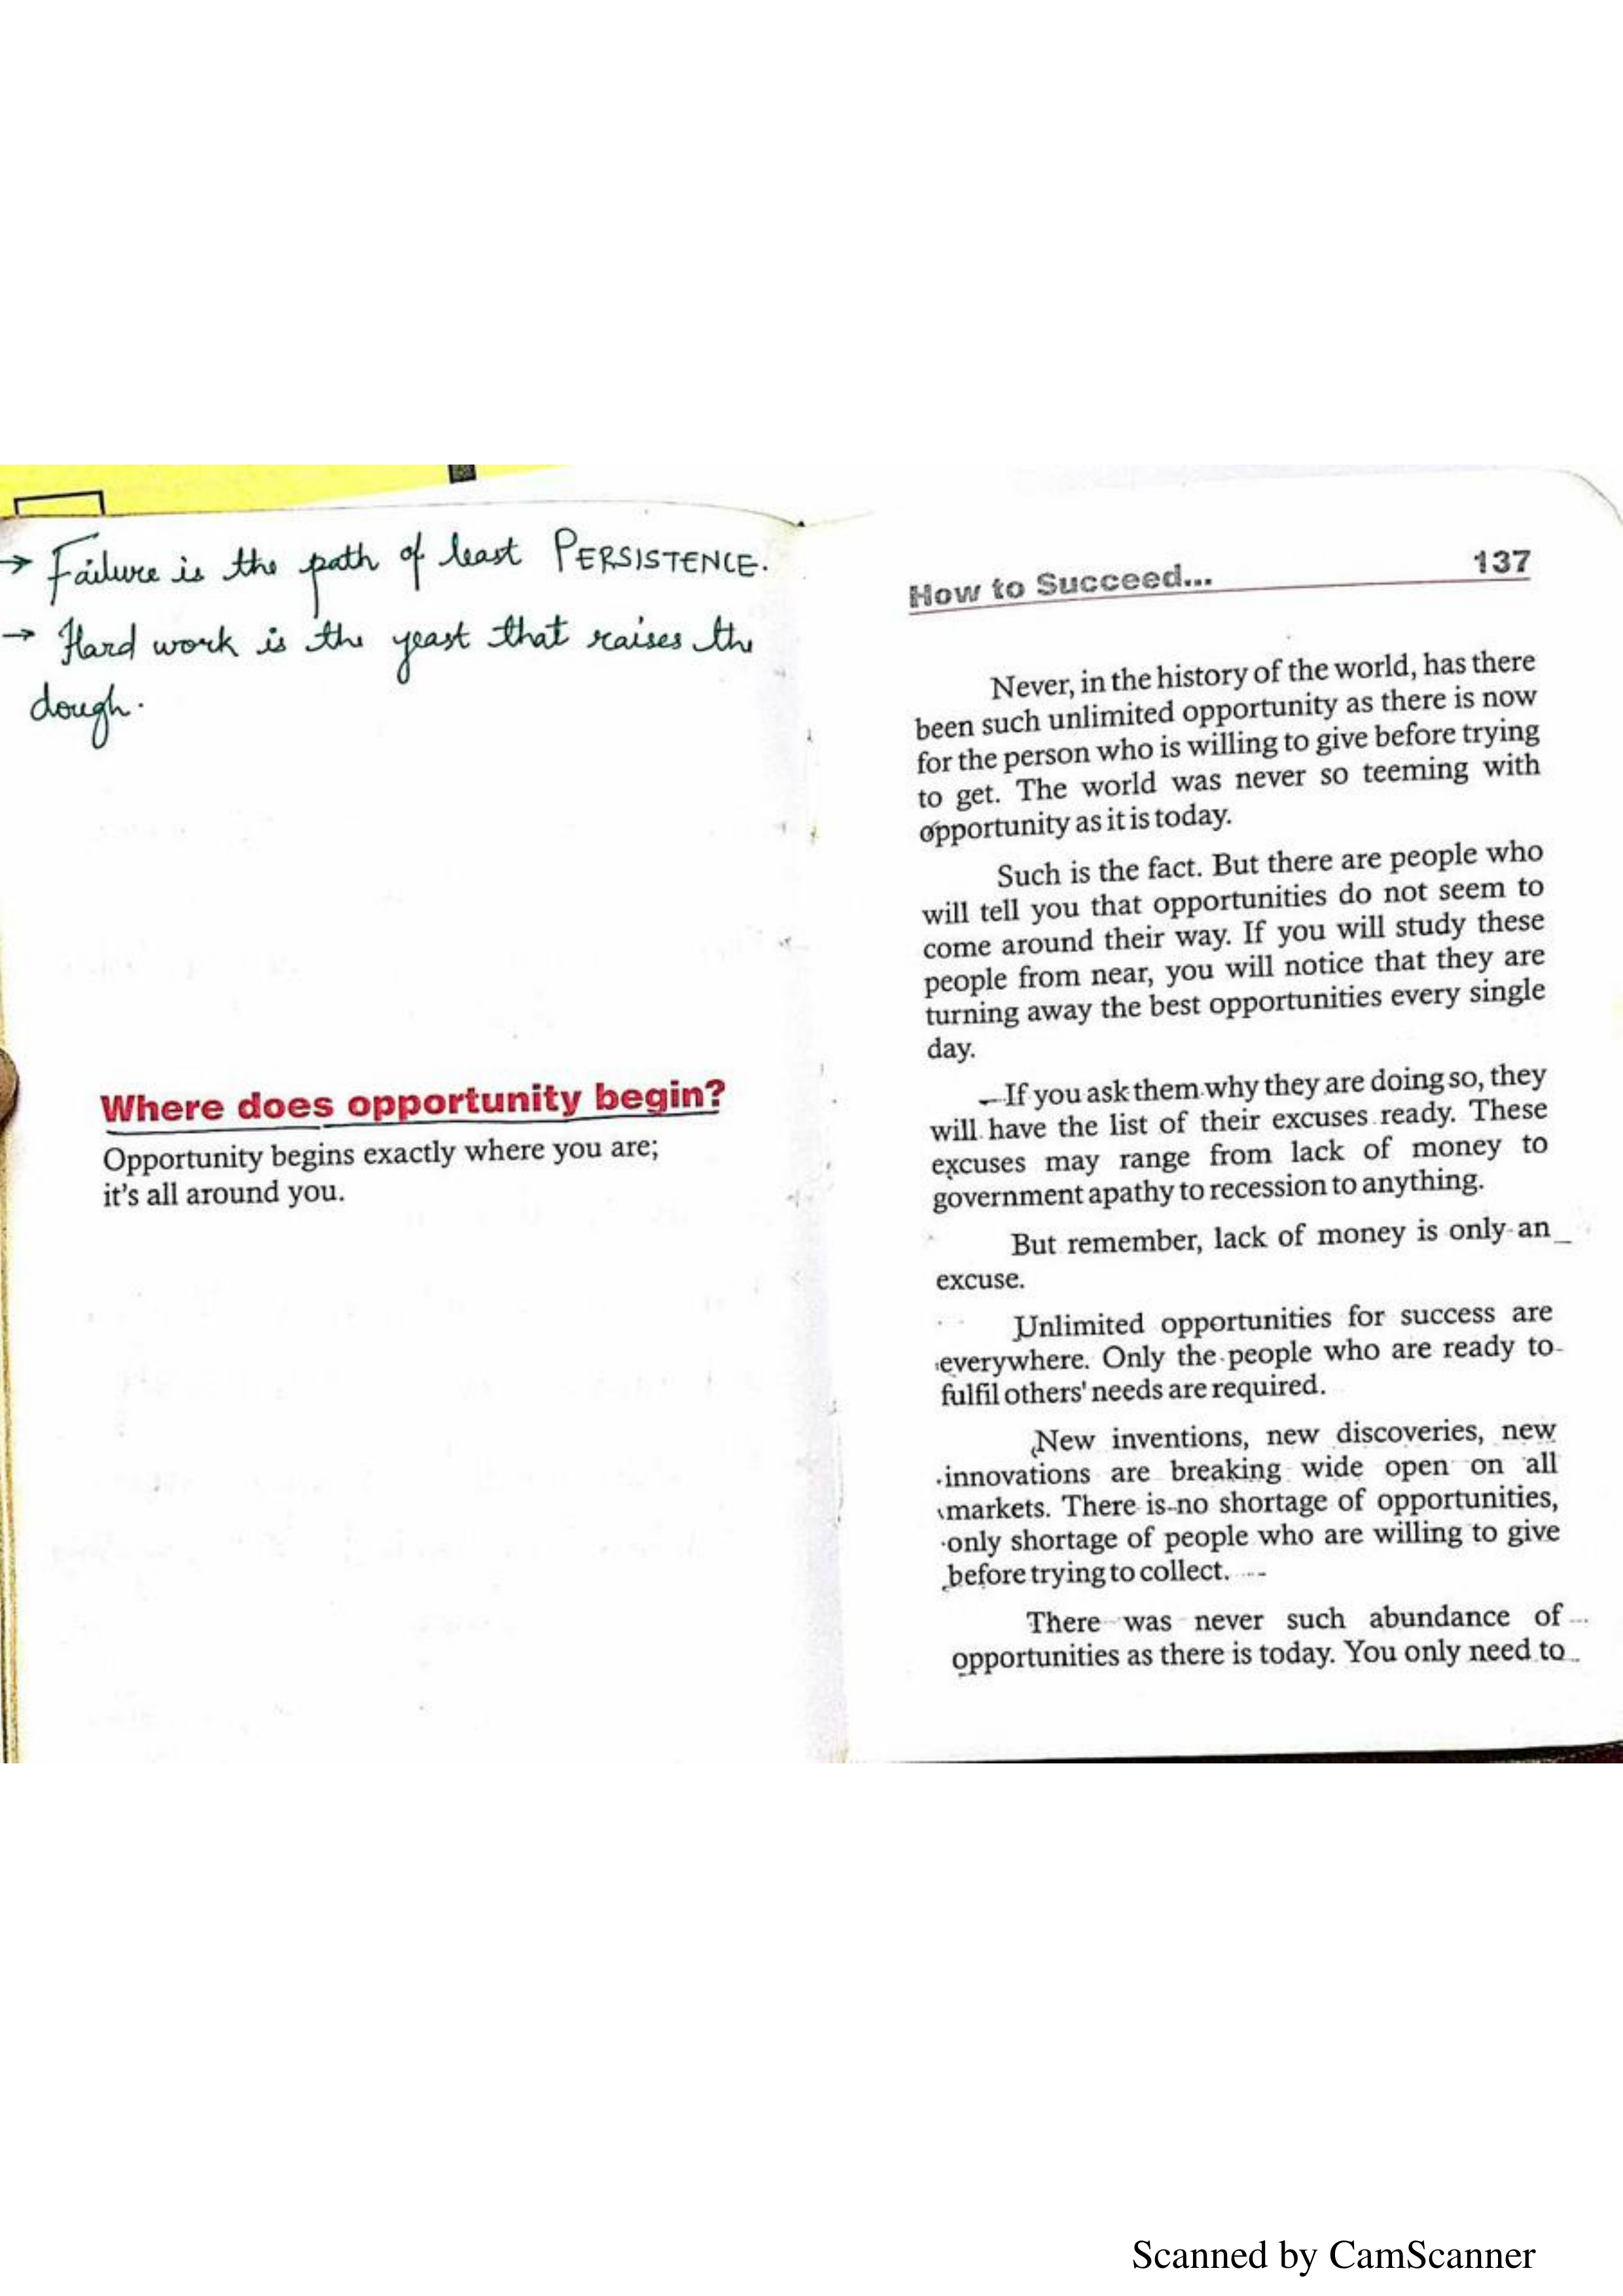 → Failure is the path of least PERSISTENCE.
→ Hard work is the yeast that raises the
dough.
Where does opportunity begin?
Opportunity begins exactly where you are;
it's all around you.
How to Succeed... 137
Never, in the history of the world, has there
been such unlimited opportunity as there is now
for the person who is willing to give before trying
to get. The world was never so teeming with
opportunity as it is today.
Such is the fact. But there are people who
will tell you that opportunities do not seem to
come around their way. If you will study these
people from near, you will notice that they are
turning away the best opportunities every single
day.
If you ask them why they are doing so, they
will have the list of their excuses ready. These
excuses may range from lack of money to
government apathy to recession to anything.
But remember, lack of money is only an
excuse.
Unlimited opportunities for success are
everywhere. Only the people who are ready to
fulfil others' needs are required.
New inventions, new discoveries, new
innovations are breaking wide open on all
markets. There is no shortage of opportunities,
only shortage of people who are willing to give
before trying to collect.
There was never such abundance of
opportunities as there is today. You only need to
Scanned by CamScanner